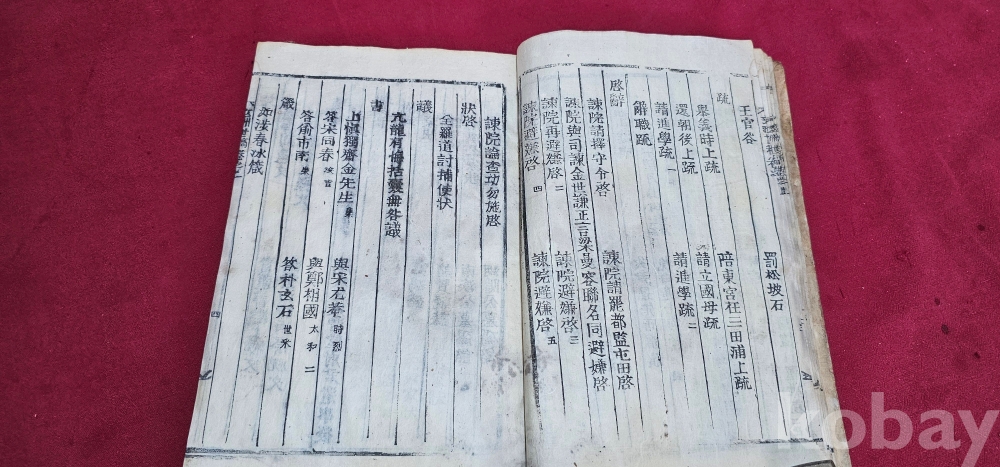 王官谷
罰松坡石
疏
擧義時上疏
陪東宮在三田浦上疏
還朝後上疏
請立國母疏
請進學疏 一
請進學疏 二
辭職疏
啓辭
諫院請罷都監屯田啓
諫院請擇守令啓
諫院與司諫金世濂正言梁曼容聯名同避嫌啓
諫院避嫌啓 二
諫院避嫌啓 三
諫院再避嫌啓
諫院避嫌啓 四
諫院避嫌啓 五
諫院論查功勿施啓
狀啓
全羅道討捕使狀
議
亢龍有悔括囊無咎議
書
上愼獨齋金先生 集
與宋尤菴 時烈
答宋同春 浚吉
與鄭相國 太和 二
答俞市南 棨
答朴玄石 世采
箴
如淺春冰箴
四
kobay